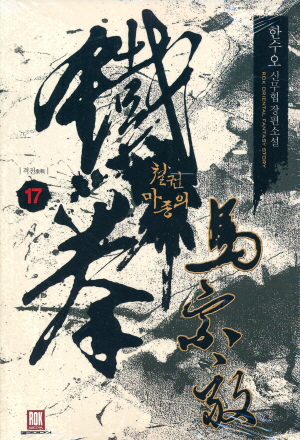 한수오 신무협 장편소설
ROK ORIENTAL FANTASY STORY
鐵
拳
철권
마종의
馬
宗
17
ROK